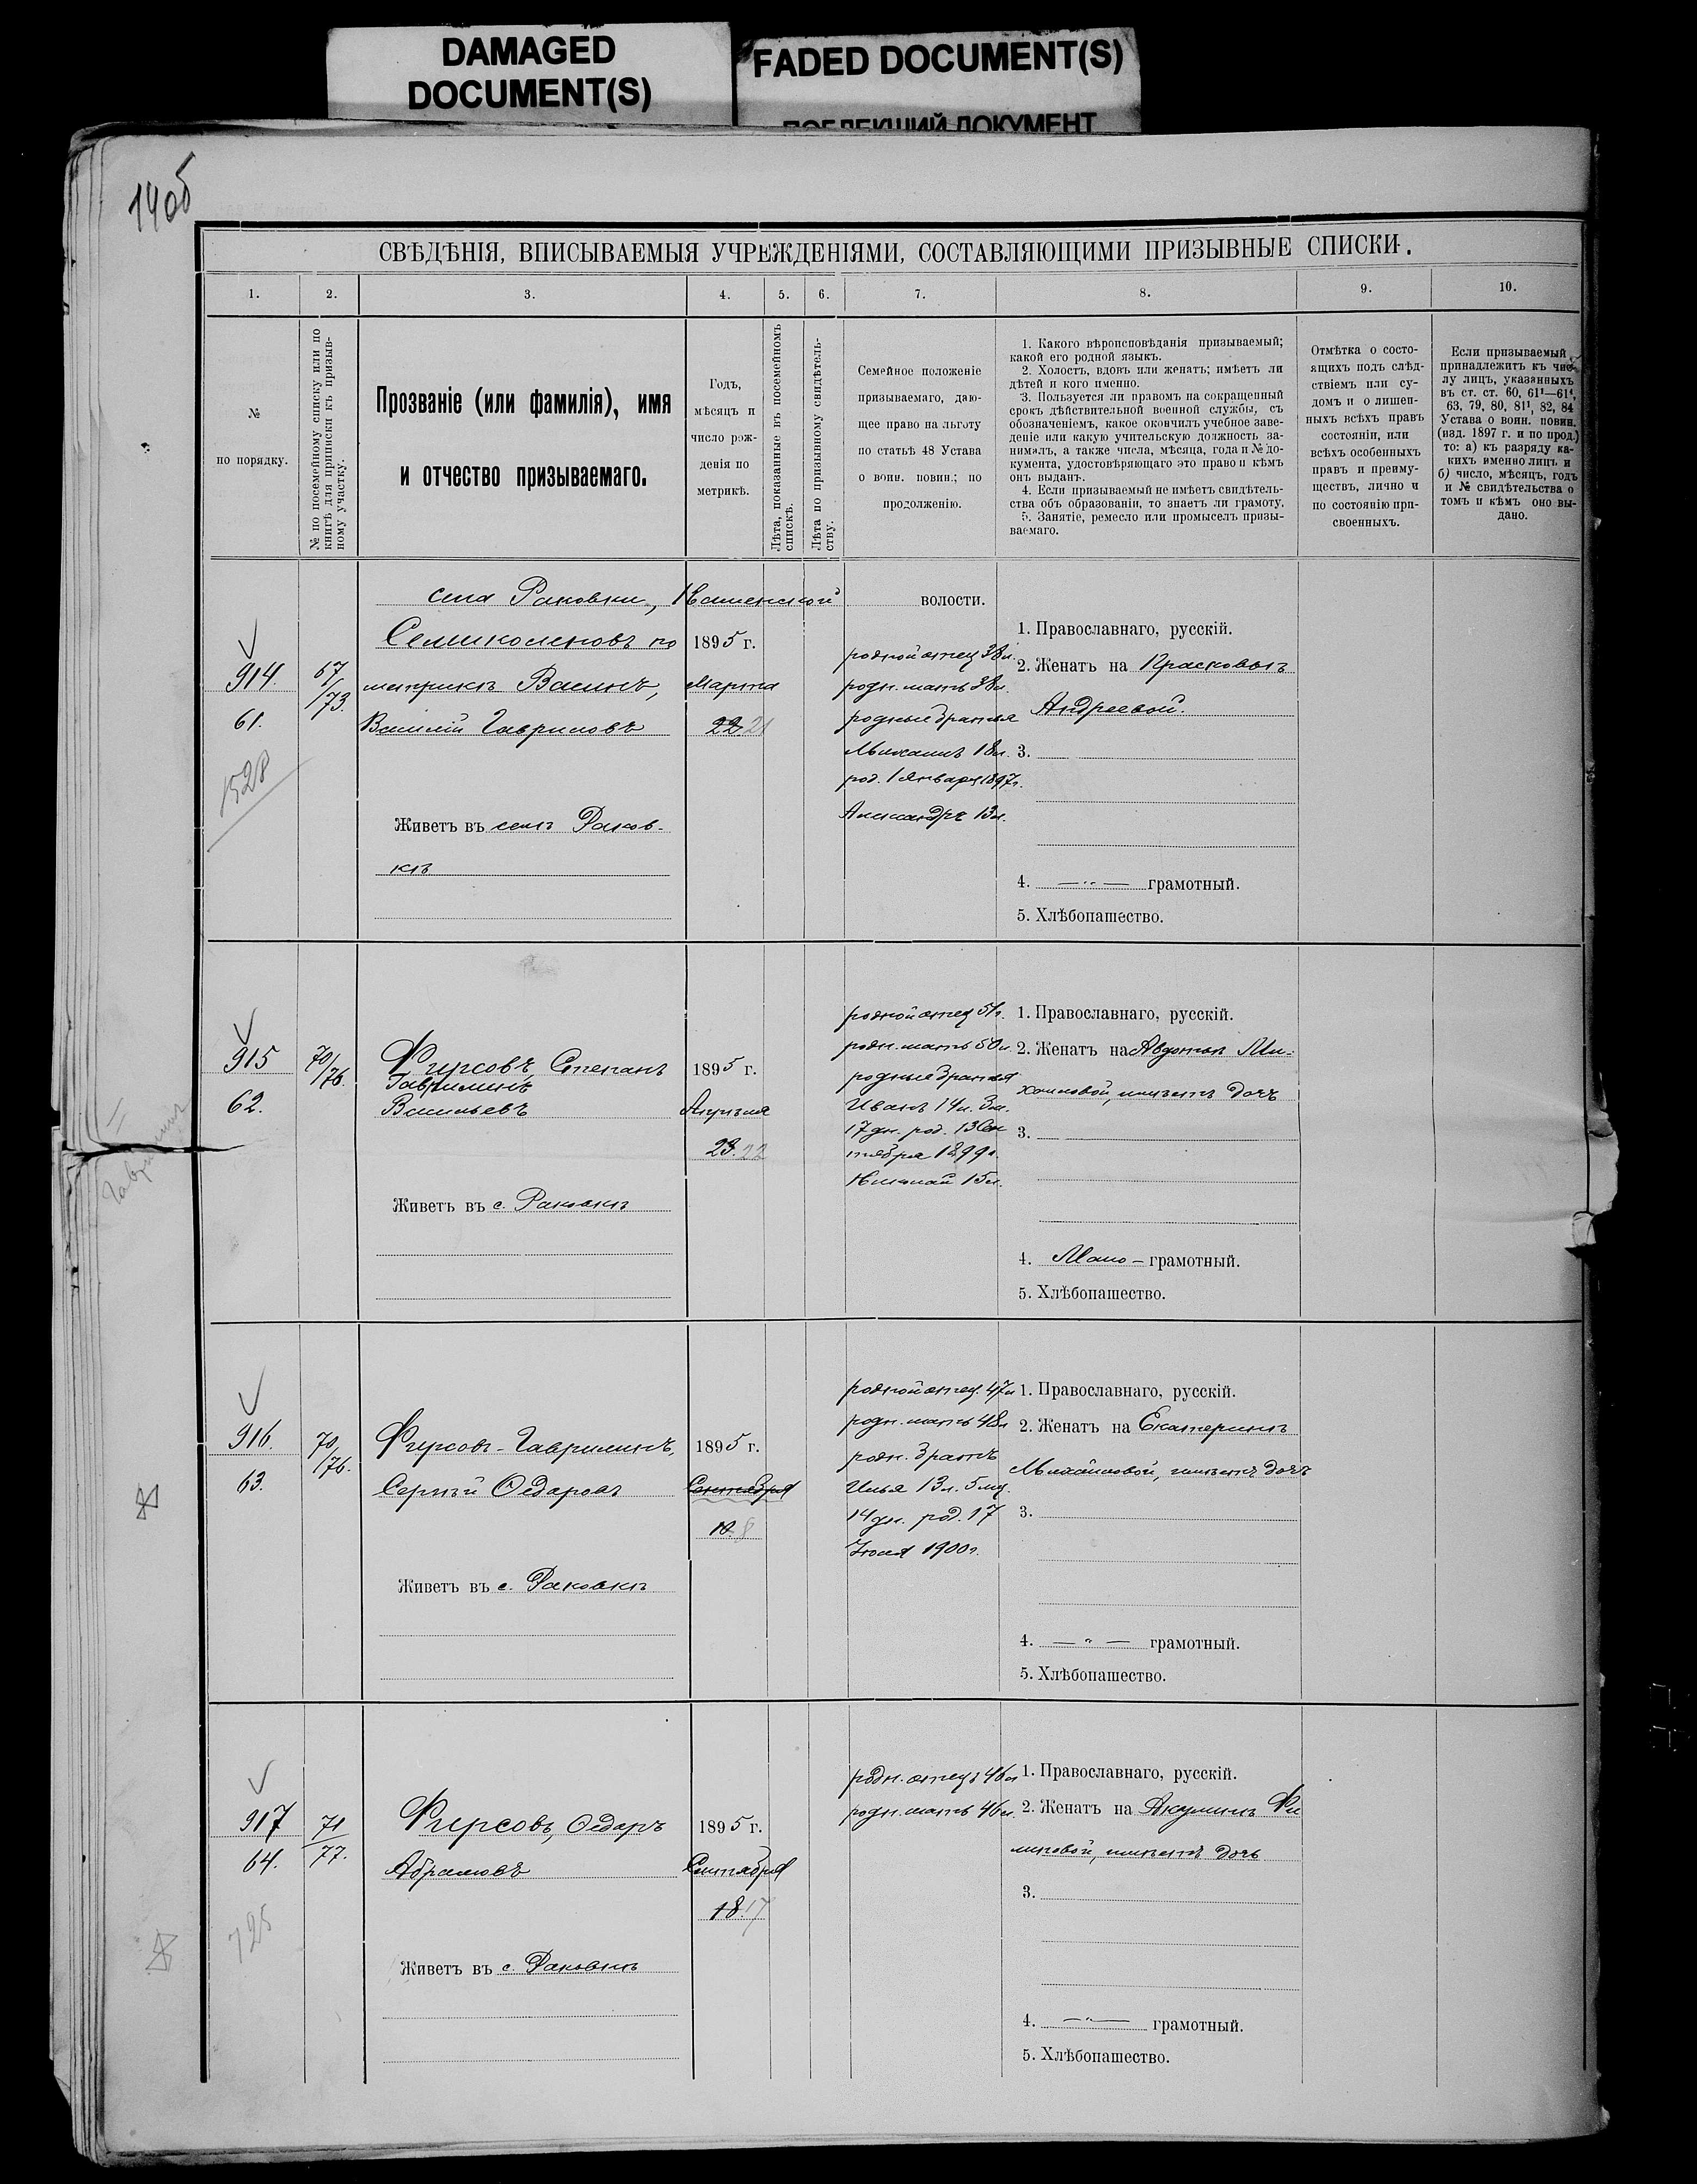 DAMAGED
DOCUMENT(S)
FADED DOCUMENT(S)
ПОБЛЕКШИЙ ДОКУМЕНТ
140б
СВѢДѢНІЯ, ВПИСЫВАЕМЫЯ УЧРЕЖДЕНІЯМИ, СОСТАВЛЯЮЩИМИ ПРИЗЫВНЫЕ СПИСКИ.
1.
2.
3.
4.
5.
6.
7.
8.
9.
10.
№
по порядку.
№ по посемейному списку или по
книгѣ для приписки къ призыв-
ному участку.
Прозваніе (или фамилія), имя
и отчество призываемаго.
Годъ,
мѣсяцъ и
число рож-
денія по
метрикѣ.
Лѣта, показанные въ посемейномъ
спискѣ.
Лѣта по призывному свидѣтель-
ству.
Семейное положеніе
призываемаго, даю-
щее право на льготу
по статьѣ 48 Устава
о воин. повин.; по
продолженію.
1. Какого вѣроисповѣданія призываемый;
какой его родной языкъ.
2. Холостъ, вдовъ или женатъ; имѣетъ ли
дѣтей и кого именно.
3. Пользуется ли правомъ на сокращенный
срокъ дѣйствительной военной службы, съ
обозначеніемъ, какое окончилъ учебное заве-
деніе или какую учительскую должность за-
нималъ, а также числа, мѣсяца, года и № до-
кумента, удостовѣряющаго это право и кѣмъ
онъ выданъ.
4. Если призываемый не имѣетъ свидѣтель-
ства объ образованіи, то знаетъ ли грамоту.
5. Занятіе, ремесло или промыселъ призы-
ваемаго.
Отмѣтка о состо-
ящихъ подъ слѣд-
ствіемъ или су-
домъ и о лишен-
ныхъ всѣхъ правъ
состоянія, или
всѣхъ особенныхъ
правъ и преиму-
ществъ, лично и
по состоянію при-
своенныхъ.
Если призываемый
принадлежитъ къ чис-
лу лицъ, указанныхъ
въ ст. ст. 60, 61¹—61⁴,
63, 79, 80, 81¹, 82, 84
Устава о воин. повин.
(изд. 1897 г. и по прод.)
то: а) къ разряду ка-
кихъ именно лицъ и
б) число, мѣсяцъ, годъ
и № свидѣтельства о
томъ и кѣмъ оно вы-
дано.
села Раковки, волости.
914.
61.
1528
67/73.
Семиколеновъ по
метрикѣ Васинъ,
Василій Гавриловъ
Живетъ въ селѣ Раков-
кѣ
1895 г.
Марта
22. 21
родной отец 38л.
родн. мать 38л.
родные братья
Михаилъ 18л.
род. 1 Января 1897г.
Александръ 13л.
1. Православнаго, русскій.
2. Женатъ на Прасковьѣ
Андреевой.
3.
4. — " — грамотный.
5. Хлѣбопашество.
915
62.
70/76.
Фирсовъ, Степанъ
Гаврилинъ
Васильевъ
Живетъ въ с. Раковкѣ
1895 г.
Апрѣля
23. 22
родной отец 51л.
родн. мать 50л.
родные братья
Иванъ 14л. 3м.
17 дн. род. 13 Сен
тября 1899г.
Николай 15л.
1. Православнаго, русскій.
2. Женатъ на Авдотьи Ми-
хайловой, имѣетъ дочь
3.
4. Мало – грамотный.
5. Хлѣбопашество.
916.
63.
70/76.
Фирсовъ - Гаврилинъ,
Сергѣй Ѳедоровъ
Живетъ въ с. Раковкѣ
1895 г.
Сентября
10. 8
родной отец. 47л
родн. мать 48л
родн. братъ
Илья 13л. 5мц.
14 дн. род. 17
Іюля 1900г.
1. Православнаго, русскій.
2. Женатъ на Екатеринѣ
Михайловой, имѣетъ дочь
3.
4. — " — грамотный.
5. Хлѣбопашество.
917
64.
725
71/77.
Фирсовъ, Ѳедоръ
Абрамовъ
Живетъ въ с. Раковкѣ
1895 г.
Сентября
18. 17
родн. отецъ 46л
родн. мать 46л.
1. Православнаго, русскій.
2. Женатъ на Акулинѣ Фи
липовой, имѣетъ дочь
3.
4. — " — грамотный.
5. Хлѣбопашество.